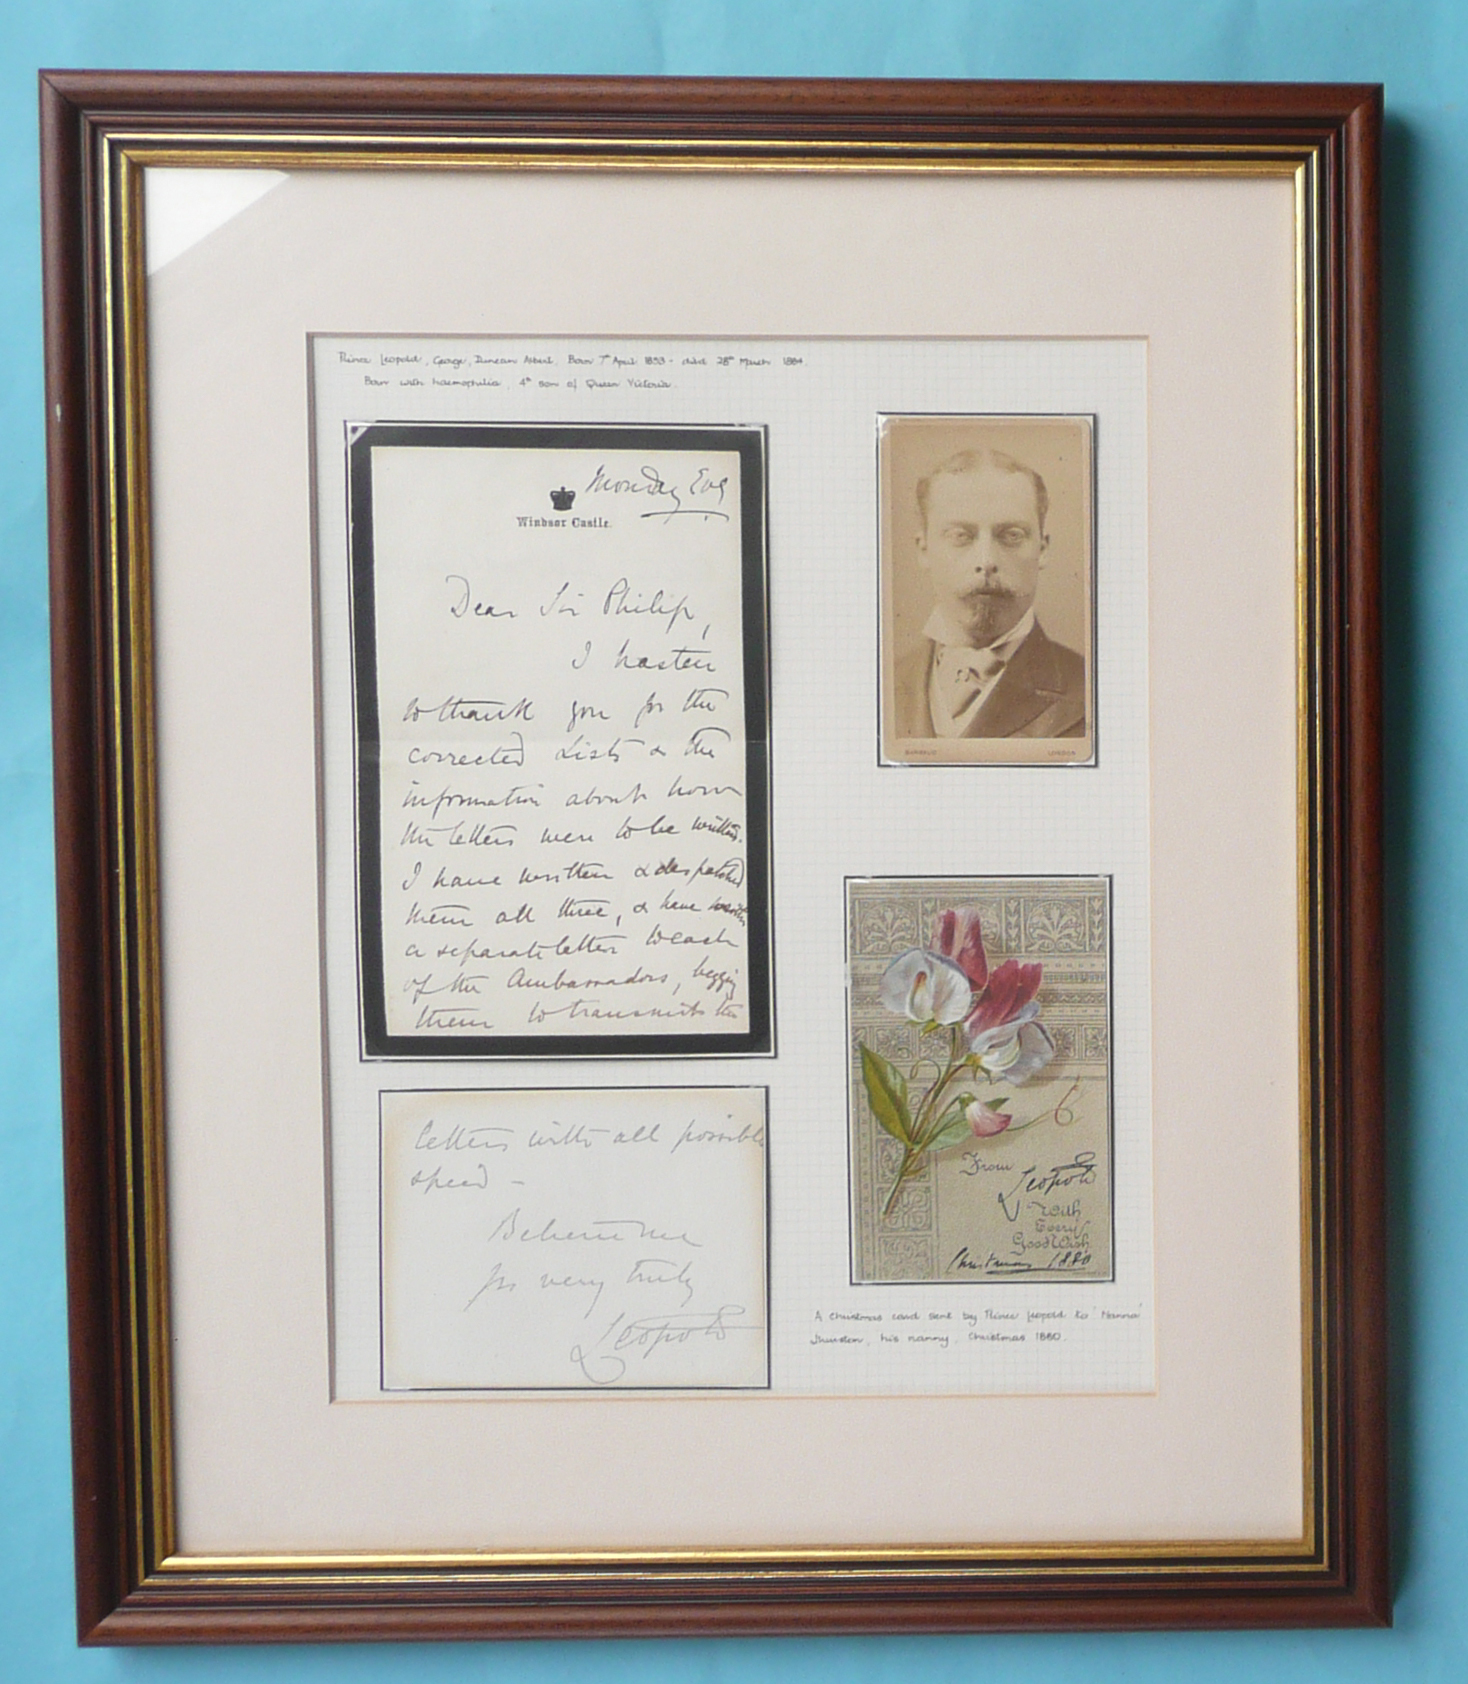 Prince Leopold, George, Duncan Albert. Born 7th April 1853 - died 28th March 1884.
Born with haemophilia, 4th son of Queen Victoria.
Monday Evg
Windsor Castle.
Dear Sir Philip,
I hasten
to thank you for the
corrected Lists & the
information about how
the letters were to be written.
I have written & despatched
them all three, & have written
a separate letter to each
of the Ambassadors, begging
them to transmit the
letters with all possible
speed -
Believe me
yrs very truly
Leopold
LONDON
From
Leopold
With
Every
Good Wish
Christmas 1880
A Christmas card sent by Prince Leopold to 'Nanna'
Thurston, his nanny, Christmas 1880.